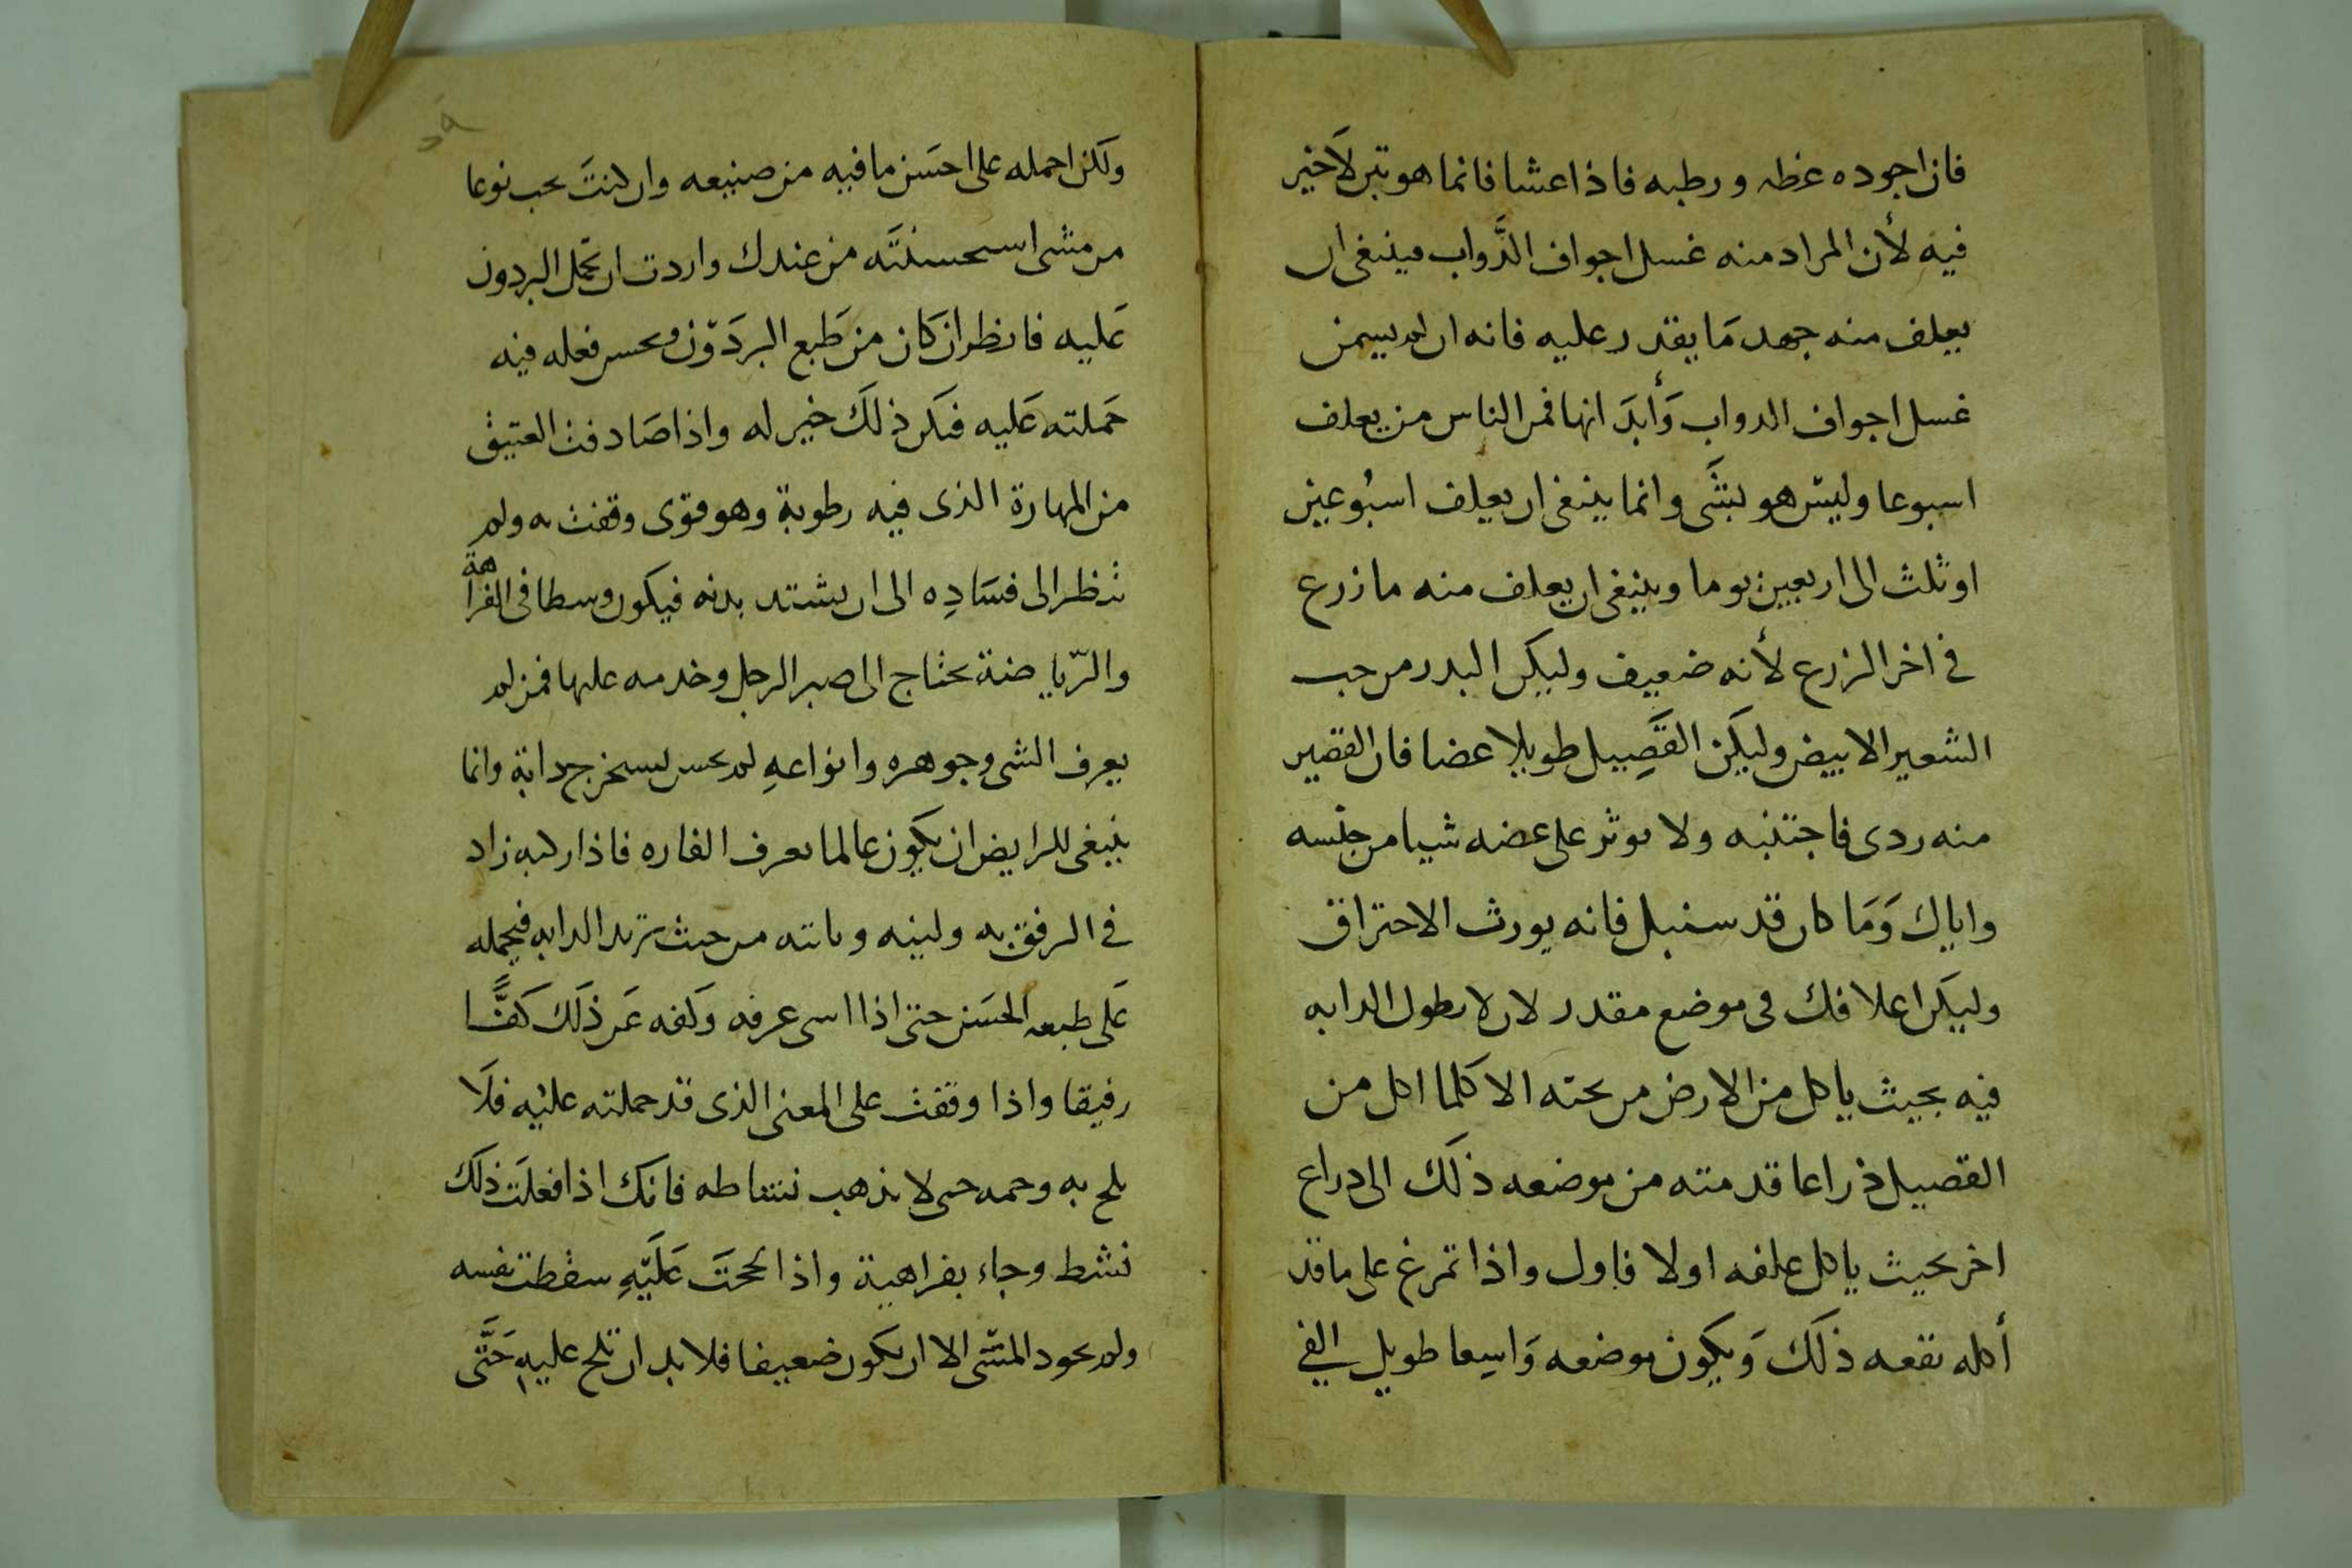 فان اجوده غظه ورطبه فاذا عشا فانما هو تبن لا خير
فيه لأن المراد منه غسل اجواف الدَّواب فينبغى ان
يعلف منه جهد مَا يقدر عليه فانه ان لم يسمن
غسل اجواف الدواب وَأبدَانها فمن الناس من يعلف
اسبوعا وليس هو بشَى وانما ينبغى ان يعلف اسبُوعين
او ثلث الى اربعين يوما وينبغى ان يعلف منه ما زرع
فى اخر الزرع لأنه ضعيف وليكن البدر من حب
الشعير الابيض وليكن القَصِيل طويلا غضا فان القصير
منه ردى فاجتنبه ولا يوثر على غضه شيا من جنسه
واياك وَمَا كان قد سنبل فانه يورث الاحتراق
وليكَن اعلافك فى موضع مقدر لان لا يطول الدابه
فيه بحيث ياكل من الارض من تحته الا كلما اكل من
القصيل ذراعا قدمته من موضعه ذلك الى ذراع
اخر بحيث ياكل علفه اولا فاول واذا تمرغ على ما قد
أكله نفعه ذلكَ وَيكون موضعه وَاسِعا طويل الفى
٥٩
ولكن احمله على احسَن ما فيه من صنيعه وان كنتَ تحب نوعا
من مشى استحسنتَه من عندك واردت ان تحمل البردون
عَليه فانظر ان كَان من طَبع البردَوّن ويحسن فعله فيه
حَملته عَليه فيكن ذلكَ خير له واذا صَادفت العتيق
من المهارة الذى فيه رطوبة وهو قوى وقفت به ولم
تنظر الى فسَادِه الى ان يشتد بدنه فيكون وسطا فى الفراهة
والرّياضة تحتاج الى صبر الرجل وخدمه عليها فمن لم
يعرف الشى وجوهره وانواعهِ لم يحسن يستخرج دابة وانما
ينبغى للرايض ان يكون عالما يعرف الفاره فاذا ركبه زاد
فى الرفق به ولينه من حيث تريد الدابه فيحمله
عَلى طبعه الحسَن حتى اذا عرفه وَكفه عَن ذلكَ كَفًّا
رفيقا واذا وقفت على المعنى الذى قد حملته عليْه فلَا
تلح به حتى لا يذهب نشاطه فانك اذا فعلت ذلكَ
نشط وجاء بفراهية واذا لححتَ عَلَيْهِ سقطت نفسه
ولم يجود المشى الا ان يكون ضعيفا فلا بد ان تلح عليهِ حَتَّى